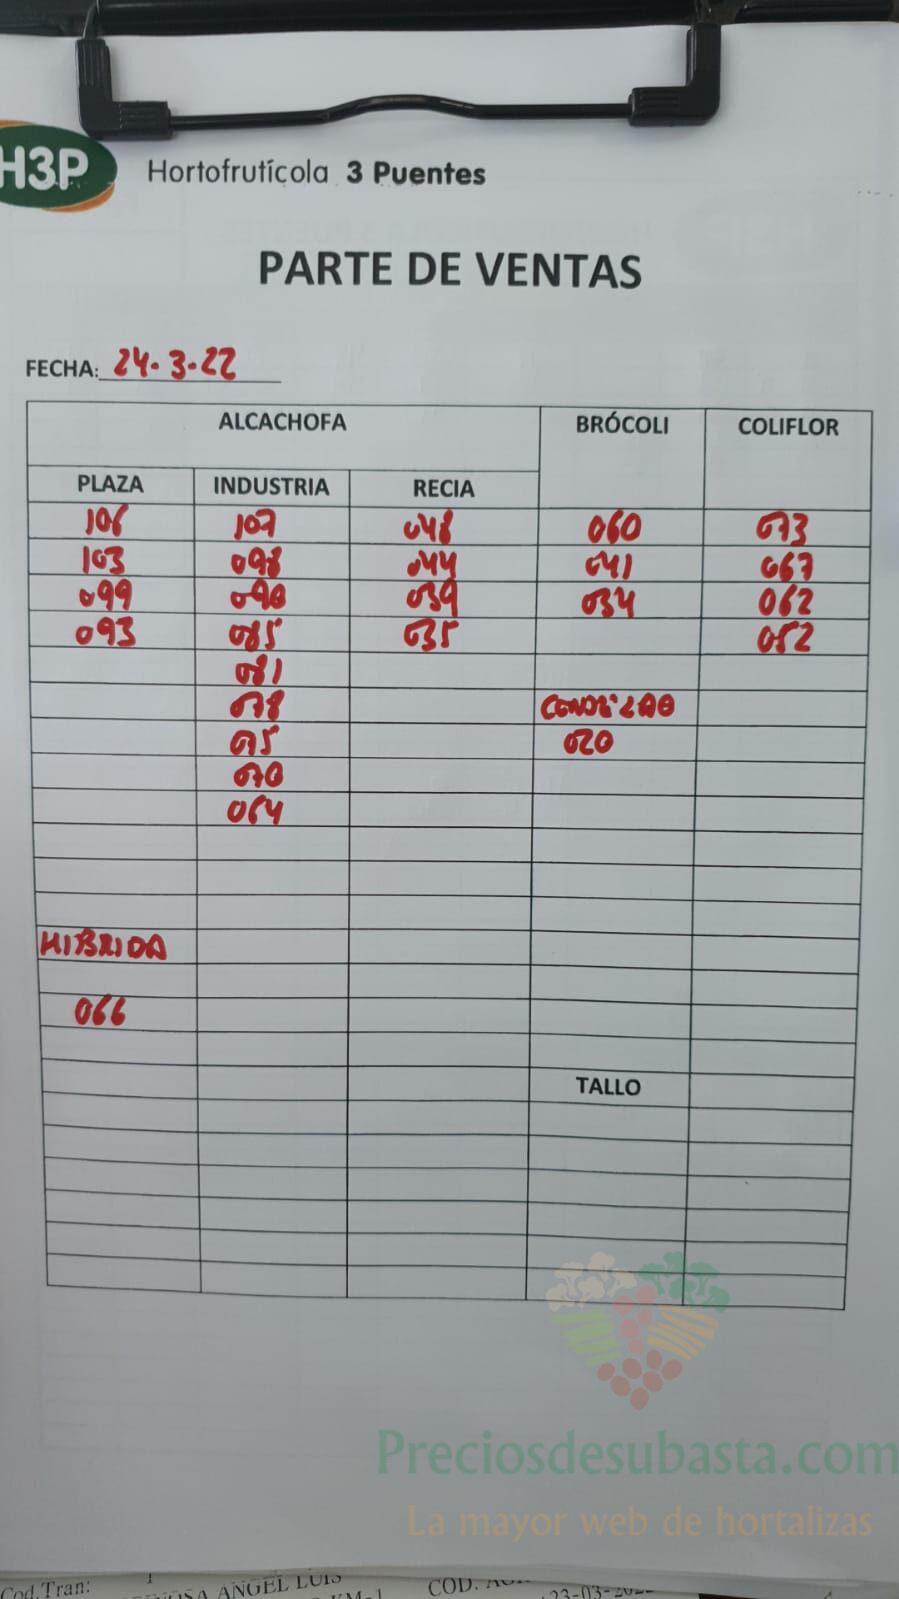 H3P Hortofrutícola 3 Puentes
PARTE DE VENTAS
FECHA: 24.3.22
ALCACHOFA BRÓCOLI COLIFLOR
PLAZA INDUSTRIA RECIA
106 107 048 060 073
103 098 044 041 067
099 090 039 034 062
093 085 035 052
081
078 CONDIZAO
075 020
070
064
HIBRIDA
066
TALLO
Preciosdesubasta.com
La mayor web de hortalizas
Cod.Tran: ANGEL LUIS COD.
23-03-